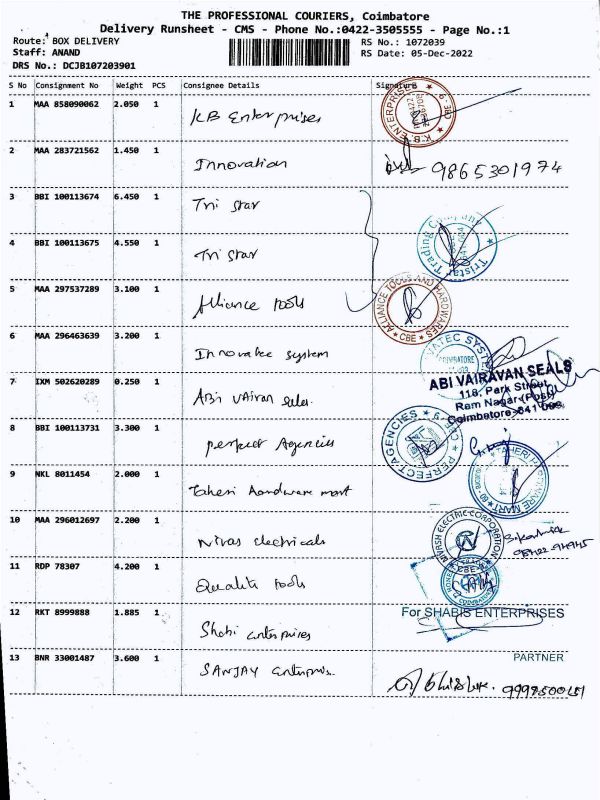 THE PROFESSIONAL COURIERS, Coimbatore
Delivery Runsheet - CMS - Phone No.:0422-3505555 - Page No.:1
Route: BOX DELIVERY
Staff: ANAND
DRS No.: DCJB107203901
RS No.: 1072039
RS Date: 05-Dec-2022
S No Consignment No Weight PCS Consignee Details Signature
1 MAA 858090062 2.050 1 KB Enterprises
K.B. ENTERPRISES CBE-9
2 MAA 283721562 1.450 1 Innovation 9865301974
3 BBI 100113674 6.450 1 Tri star
4 BBI 100113675 4.550 1 Tri star
Tristar Trading Company
5 MAA 297537289 3.100 1 Alliance tools
ALLIANCE TOOLS AND HARDWARES CBE
6 MAA 296463639 3.200 1 Innovatec system
VATEC SYSTE
COIMBATORE
7 IXM 502620289 0.250 1 ABI VAiravan seles.
ABI VAIRAVAN SEALS
118, Park Street,
Ram Nagar (Post)
Coimbatore-641 009
8 BBI 100113731 3.300 1 perfect Agencies
PERFECT AGENCIES CBE-9
9 NKL 8011454 2.000 1 Taheri hardware mart
TAHERI HARDWARE MART
10 MAA 296012697 2.200 1 Nivas electricals
NIVASH ELECTRIC CORPORATION
CBE
11 RDP 78307 4.200 1 Qualiti tools
12 RKT 8999888 1.885 1 Shabi enterprises
For SHABIS ENTERPRISES
PARTNER
13 BNR 33001487 3.600 1 SANJAY enterprises